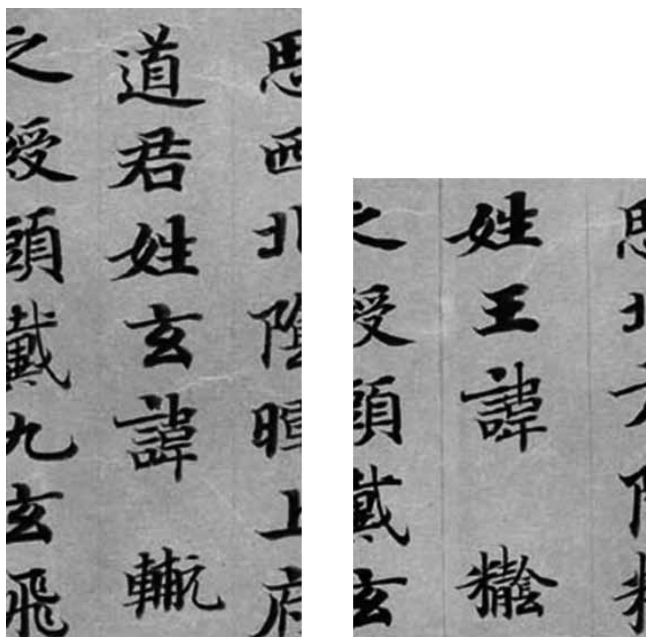 思西北陰暉上府
道君姓玄諱
之授頭戴九玄飛
思北方陰精
姓王諱
之授頭戴玄